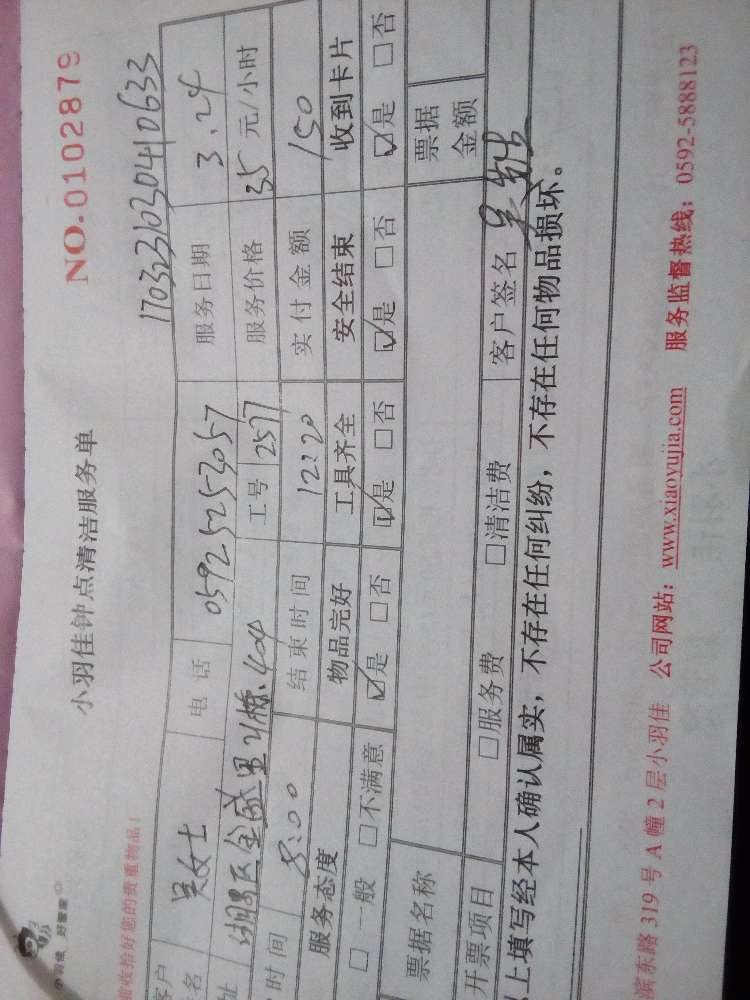 小羽佳 好管家
NO.0102879
小羽佳钟点清洁服务单
收拾好您的贵重物品！
170323103041 0633
客户 吴女士 电话 0592 5253057 服务日期 3.24
湖里区金盛里21栋.404 工号 2577 服务价格 35 元/小时
时间 8:00 结束时间 12:20 实付金额 150
服务态度 物品完好 工具齐全 安全结束 收到卡片
□一般 □不满意 ☑是 □否 ☑是 □否 ☑是 □否 ☑是 □否
票据名称 票据金额
开票项目 □服务费 □清洁费 客户签名
上填写经本人确认属实，不存在任何纠纷，不存在任何物品损坏。
滨东路319号A幢2层小羽佳 公司网站：www.xiaoyujia.com 服务监督热线：0592-5888123